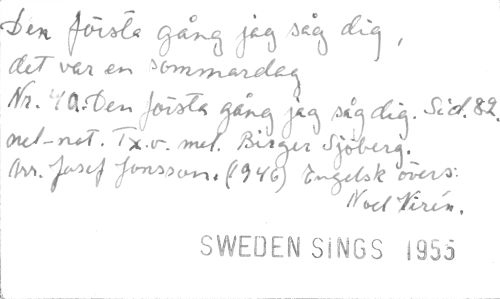 Den första gång jag såg dig,
det var en sommardag
Nr. 40. Den första gång jag såg dig. Sid. 82.
mel-not. Tx. o. mel. Birger Sjöberg.
Arr. Josef Jonsson. (1946) Engelsk övers:
Noel Wirén.
SWEDEN SINGS 1955